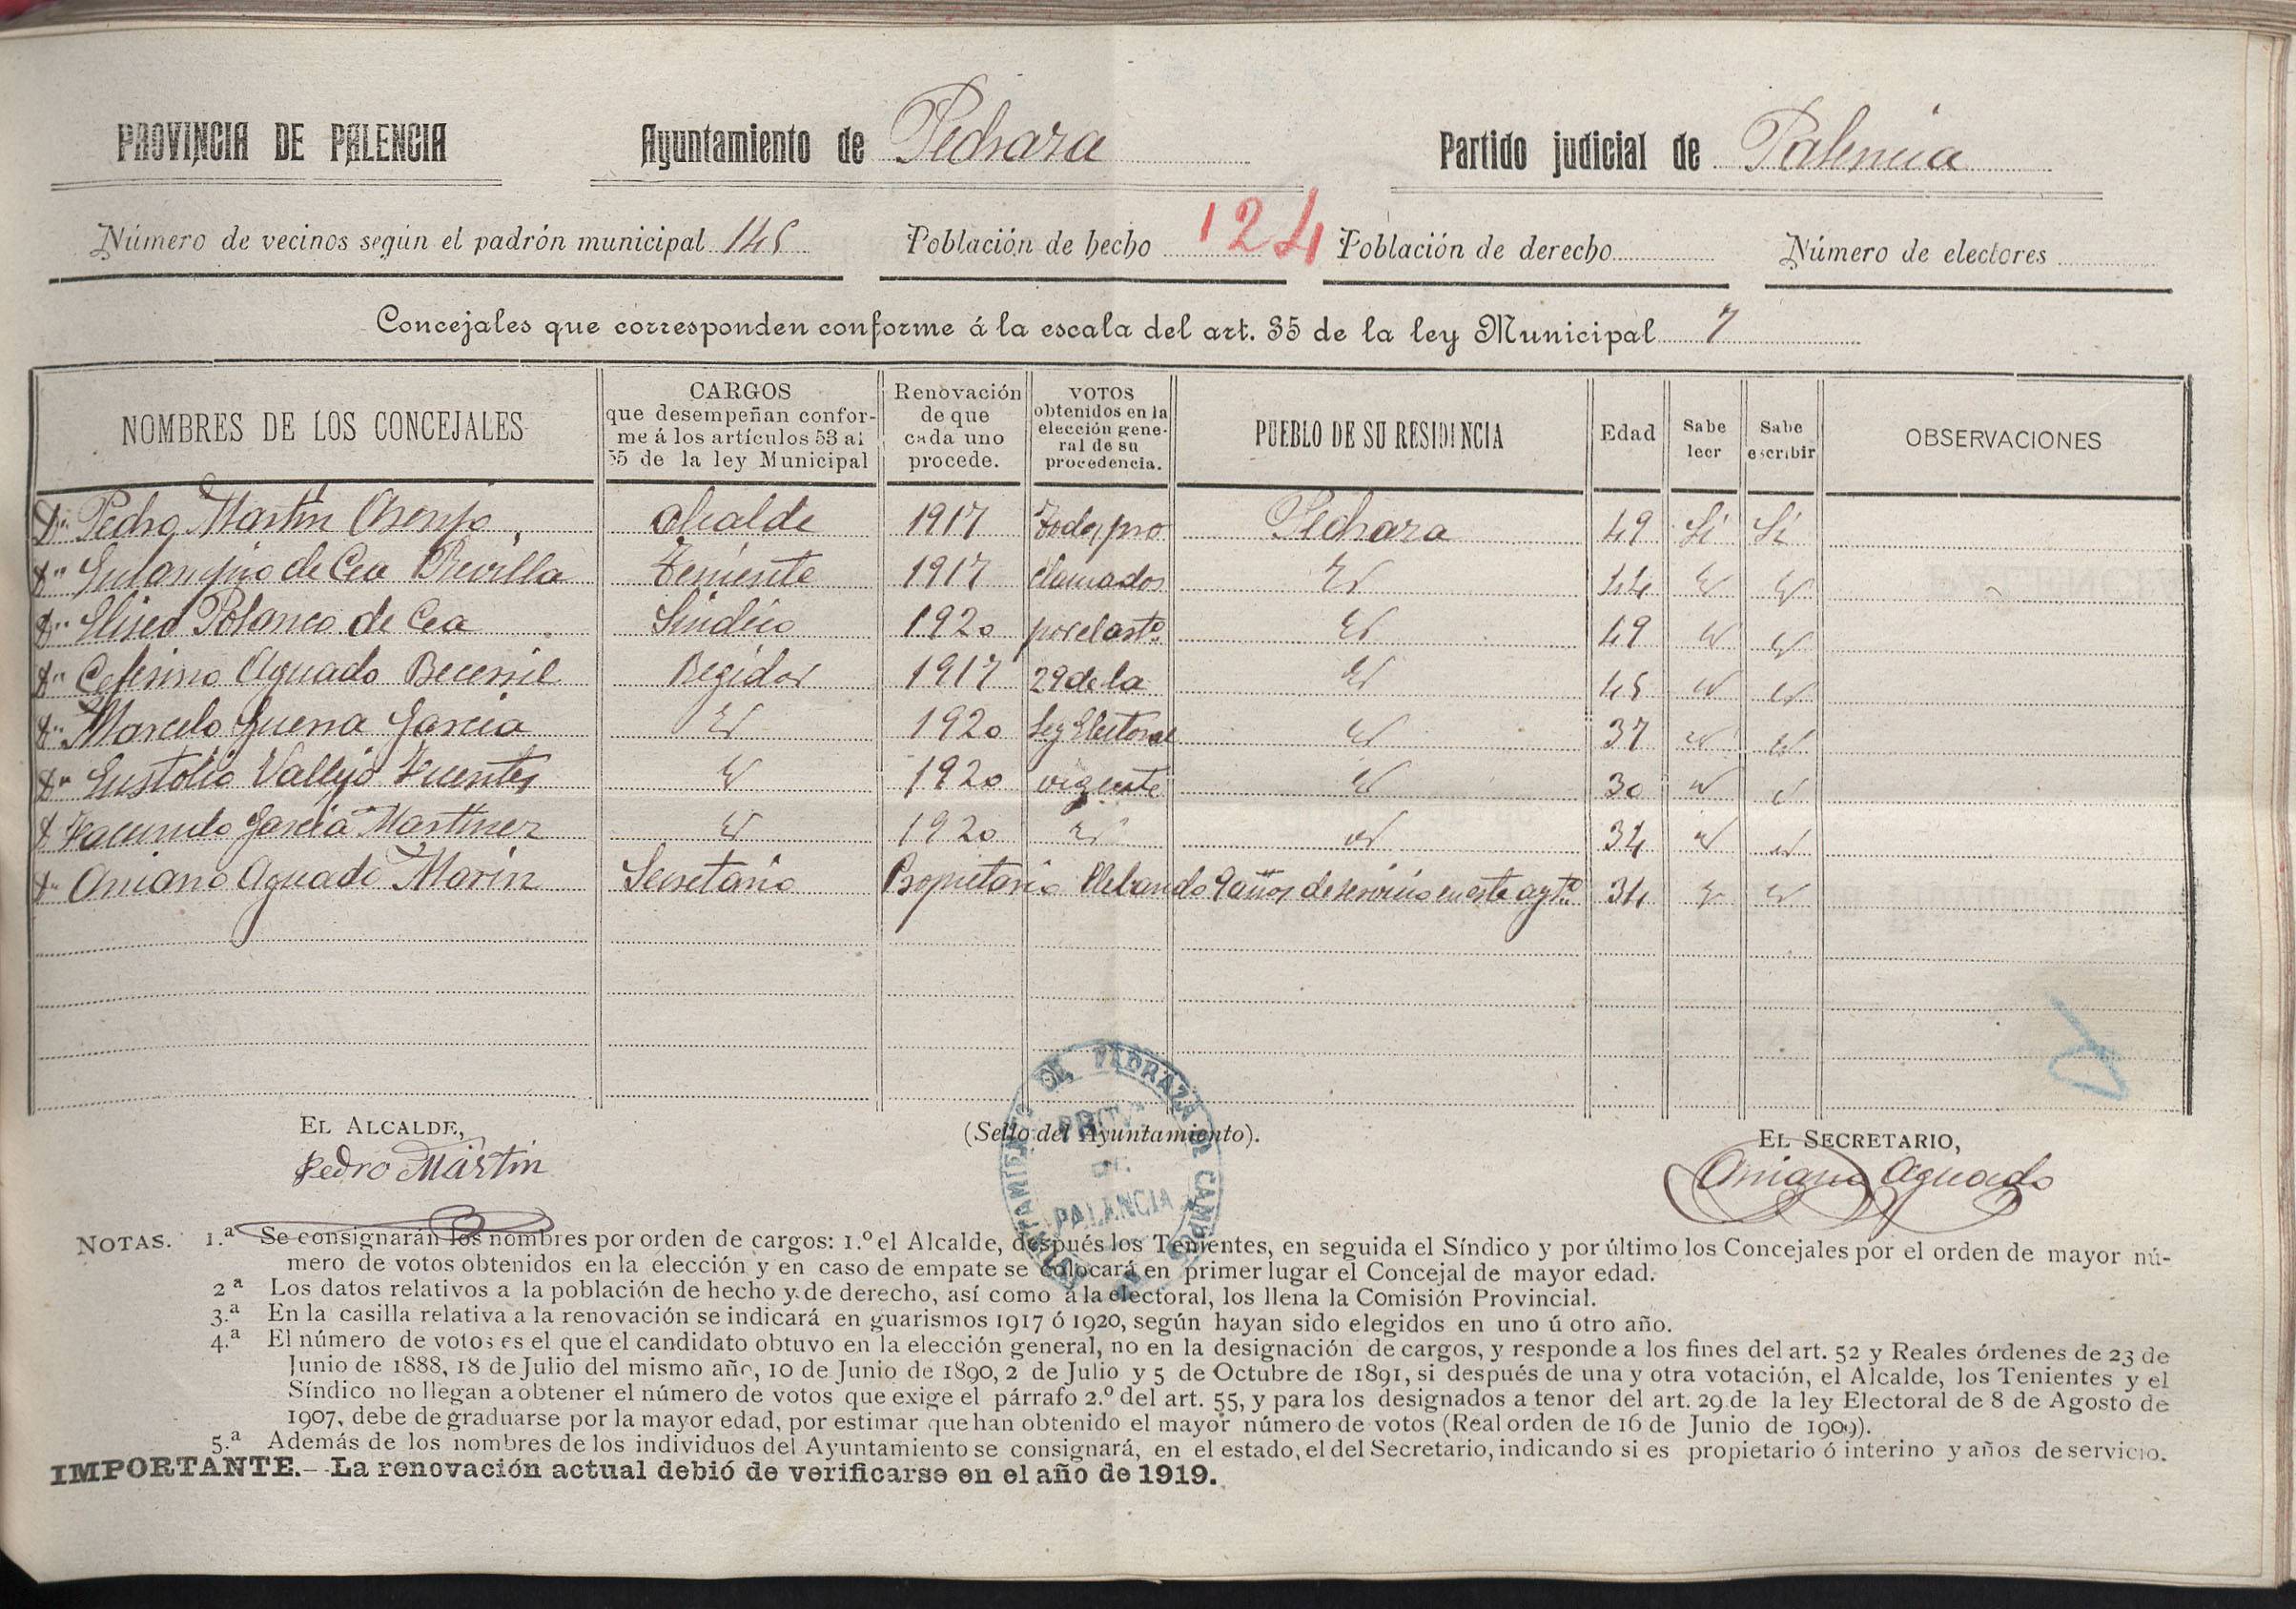 PROVINCIA DE PALENCIA Ayuntamiento de Pedraza Partido judicial de Palencia
Número de vecinos según el padrón municipal 145 Población de hecho 124 Población de derecho Número de electores
Concejales que corresponden conforme á la escala del art. 35 de la ley Municipal 7
NOMBRES DE LOS CONCEJALES
CARGOS
que desempeñan confor-
me á los artículos 53 al
55 de la ley Municipal
Renovación
de que
cada uno
procede.
VOTOS
obtenidos en la
elección gene-
ral de su
procedencia.
PUEBLO DE SU RESIDENCIA
Edad
Sabe
leer
Sabe
escribir
OBSERVACIONES
Dn Pedro Martín Asenjo Alcalde 1917 Todos pro Pedraza 49 Si Si
Dn de Cea Revilla Teniente 1917 clamados Id 44 Id Id
Dn Eliseo Polanco de Cea Sindico 1920 por el artº Id 49 Id Id
Dn Ceferino Aguado Becerril Regidor 1917 29 de la Id 45 Id Id
Dn Marcelo Guerra García Id 1920 Ley Electoral Id 37 Id Id
Dn Eustolio Vallejo Fuentes Id 1920 vigente Id 30 Id Id
D Facundo García Martínez Id 1920 Id Id 34 Id Id
Dn Aniano Aguado Marín Secretario Propietario llebando 9 años de servicio en este aytº 34 Id Id
EL ALCALDE,
Pedro Martín
(Sello del Ayuntamiento).
AYUNTAMIENTO DE PEDRAZA DE CAMPOS
PROV.A
DE
PALENCIA
EL SECRETARIO,
Aniano Aguado
NOTAS. 1.ª Se consignarán los nombres por orden de cargos: 1.º el Alcalde, después los Tenientes, en seguida el Síndico y por último los Concejales por el orden de mayor nú-
mero de votos obtenidos en la elección y en caso de empate se colocará en primer lugar el Concejal de mayor edad.
2ª Los datos relativos a la población de hecho y de derecho, así como á la electoral, los llena la Comisión Provincial.
3.ª En la casilla relativa a la renovación se indicará en guarismos 1917 ó 1920, según hayan sido elegidos en uno ú otro año.
4.ª El número de votos es el que el candidato obtuvo en la elección general, no en la designación de cargos, y responde a los fines del art. 52 y Reales órdenes de 23 de
Junio de 1888, 18 de Julio del mismo año, 10 de Junio de 1890, 2 de Julio y 5 de Octubre de 1891, si después de una y otra votación, el Alcalde, los Tenientes y el
Síndico no llegan a obtener el número de votos que exige el párrafo 2.º del art. 55, y para los designados a tenor del art. 29 de la ley Electoral de 8 de Agosto de
1907, debe de graduarse por la mayor edad, por estimar que han obtenido el mayor número de votos (Real orden de 16 de Junio de 1909).
5.ª Además de los nombres de los individuos del Ayuntamiento se consignará, en el estado, el del Secretario, indicando si es propietario ó interino y años de servicio.
IMPORTANTE.--La renovación actual debió de verificarse en el año de 1919.